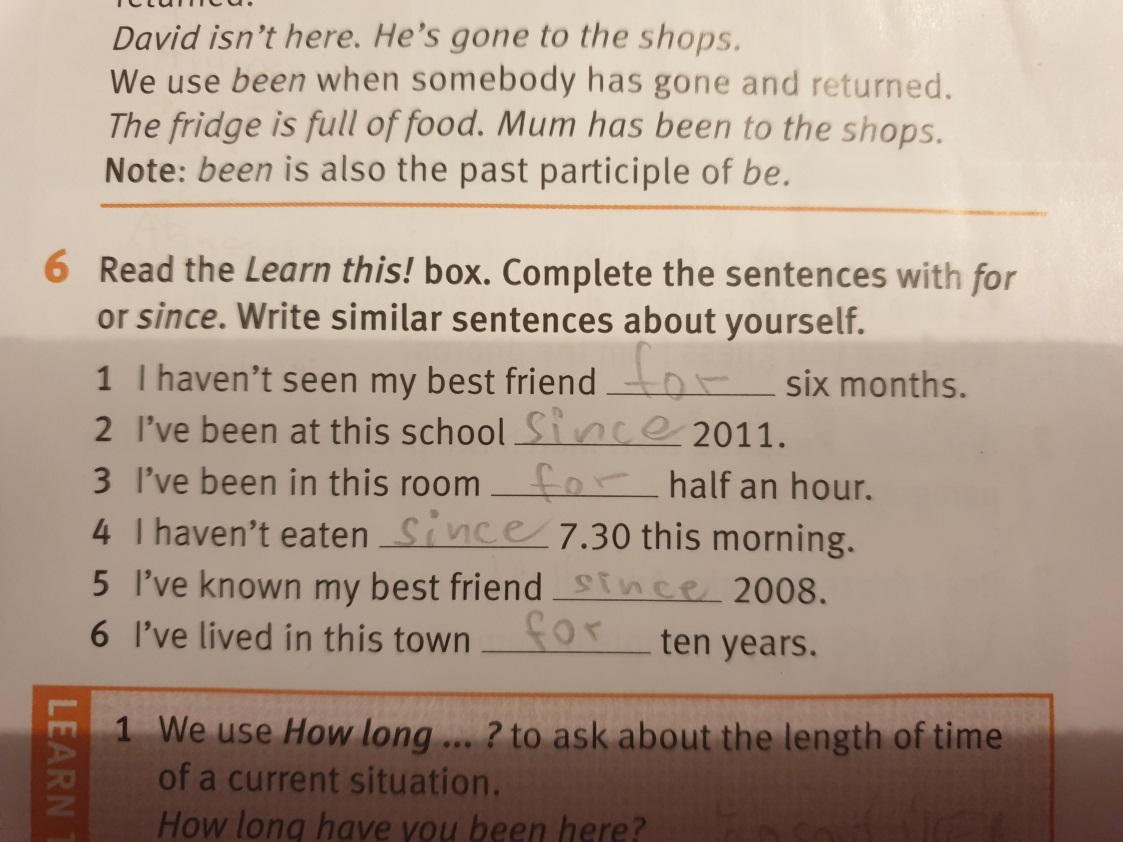 David isn't here. He's gone to the shops.
We use been when somebody has gone and returned.
The fridge is full of food. Mum has been to the shops.
Note: been is also the past participle of be.
6 Read the Learn this! box. Complete the sentences with for
or since. Write similar sentences about yourself.
1 I haven't seen my best friend for six months.
2 I've been at this school since 2011.
3 I've been in this room for half an hour.
4 I haven't eaten since 7.30 this morning.
5 I've known my best friend since 2008.
6 I've lived in this town for ten years.
LEARN
1 We use How long ... ? to ask about the length of time
of a current situation.
How long have you been here?